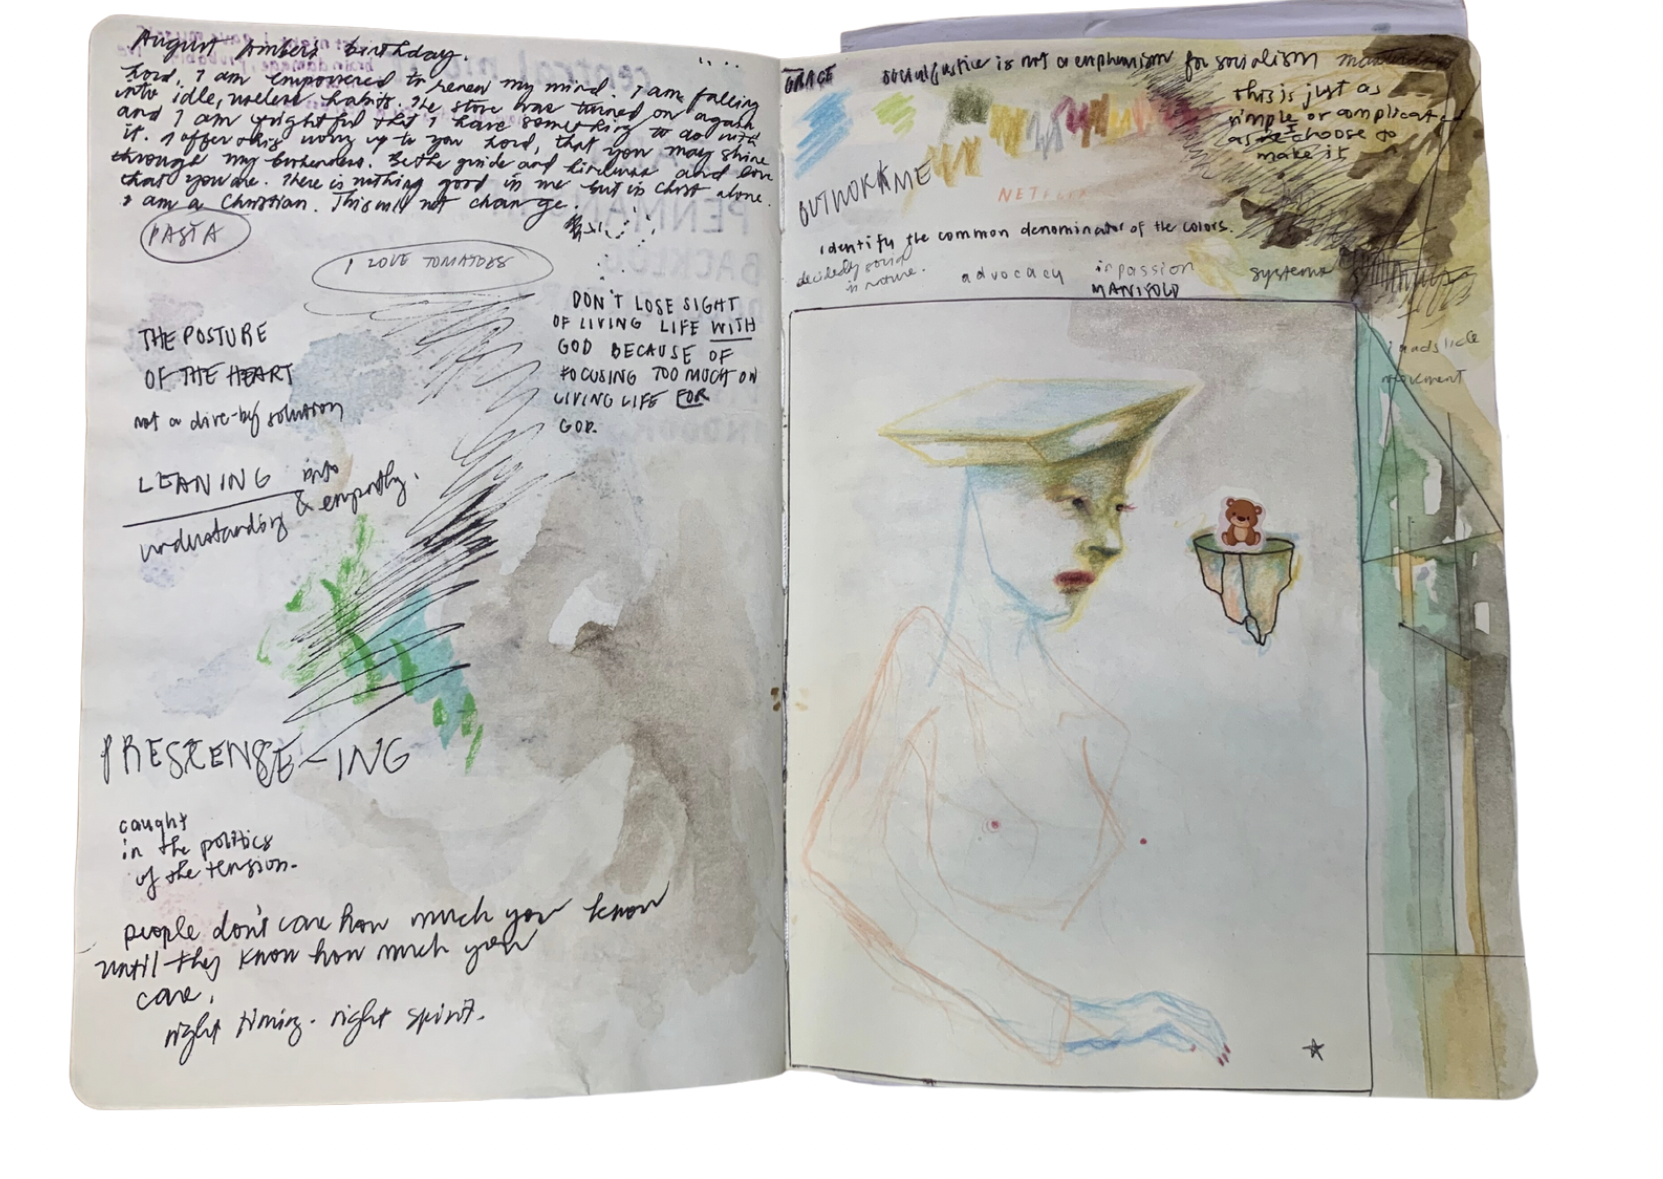 August Ambers birthday.
Lord, I am empowered to renew my mind. I am falling
into idle, useless habits. The stove was turned on again
and I am frightful that I have something to do with
it. I offer this worry up to you Lord, that you may shine
through my burdens. Be the guide and kindness and love
that you are. There is nothing good in me but is Christ alone.
I am a Christian. This will not change.
PASTA
I LOVE TOMATOES
THE POSTURE
OF THE HEART
not a dive-by solution
DON'T LOSE SIGHT
OF LIVING LIFE WITH
GOD BECAUSE OF
FOCUSING TOO MUCH ON
LIVING LIFE FOR
GOD.
LEANING into
understanding & empathy.
PRESCENSE-ING
caught
in the politics
of the tension.
people don't care how much you know
until they know how much you
care.
right timing. right spirit.
GRACE
social justice is not a euphemism for socialism
this is just as
simple or complicated
as I choose to
make it
OUTWORK ME
NETFLIX
identify the common denominator of the colors.
decidedly social
in nature.
advocacy
impassion
MANIFOLD
systems
movement